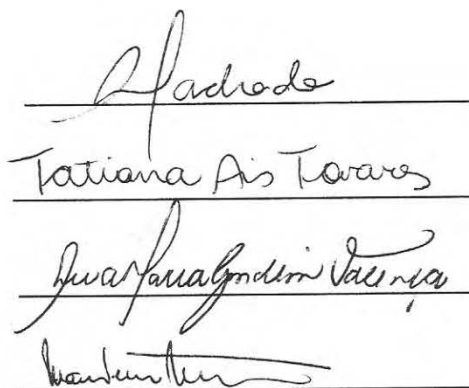 Andrade
Tatiana Ais Tavares
Ana Maria Gondim Valença